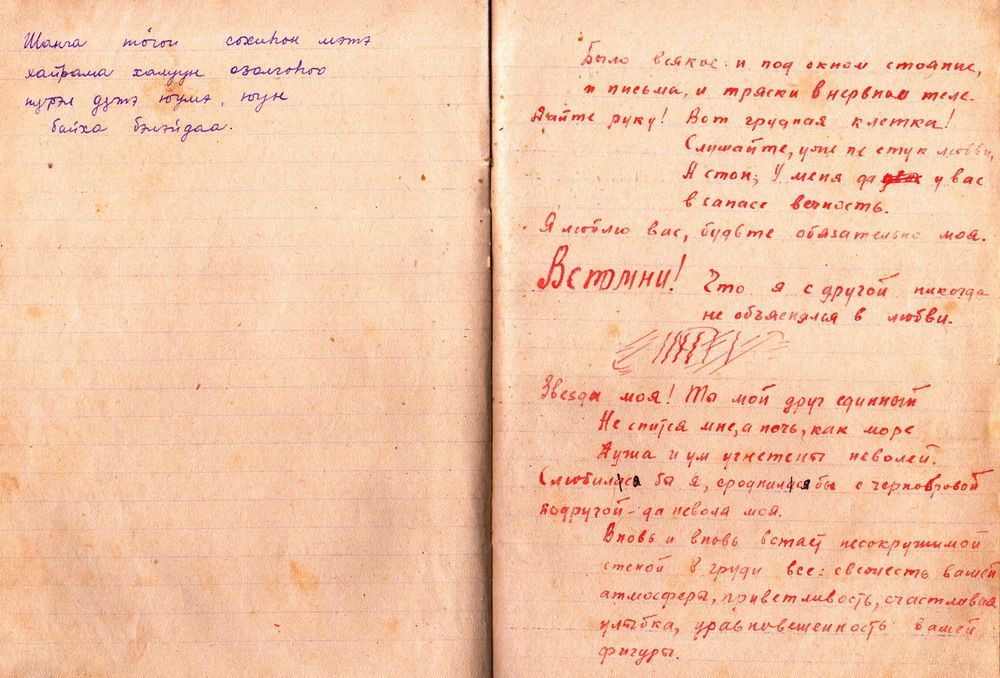 Шанга тогоп сохиһон мэтэ
хайрама халуун озолгоһоо
нүгэл дутэ юумэ, юун
байха бэлэйдаа.
Было всякое: и под окном стояние,
и письма, и тряски в нервном теле.
Дайте руку! Вот грудная клетка!
Слушайте, уже не стук любви,
А стон; У меня да у вас
в запасе вечность.
Я люблю вас, будьте обязательно моя.
Вспомни! Что я с другой никогда
не объяснялся в любви.
Звезда моя! Ты мой друг единный
Не спится мне, а ночь, как море
Душа и ум угнетены неволей.
Слюбился бы я, сроднился бы с чернобровой
подругой - да неволя моя.
Вновь и вновь встаёт несокрушимой
стеной в груди все: свежесть вашей
атмосферы, приветливость, счастливая
улыбка, уравновешенность вашей
фигуры.